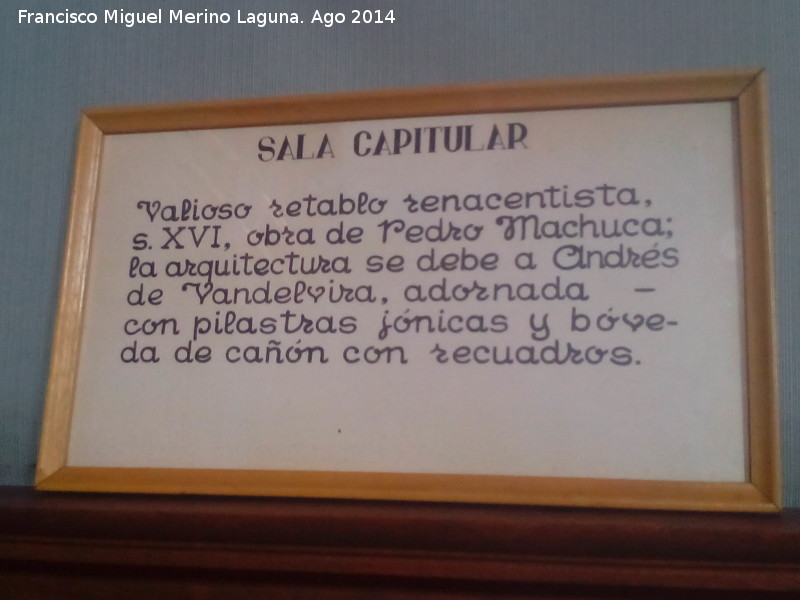 Francisco Miguel Merino Laguna. Ago 2014
SALA CAPITULAR
Valioso retablo renacentista,
s. XVI, obra de Pedro Machuca;
la arquitectura se debe a Andrés
de Vandelvira, adornada —
con pilastras jónicas y bóve-
da de cañón con recuadros.